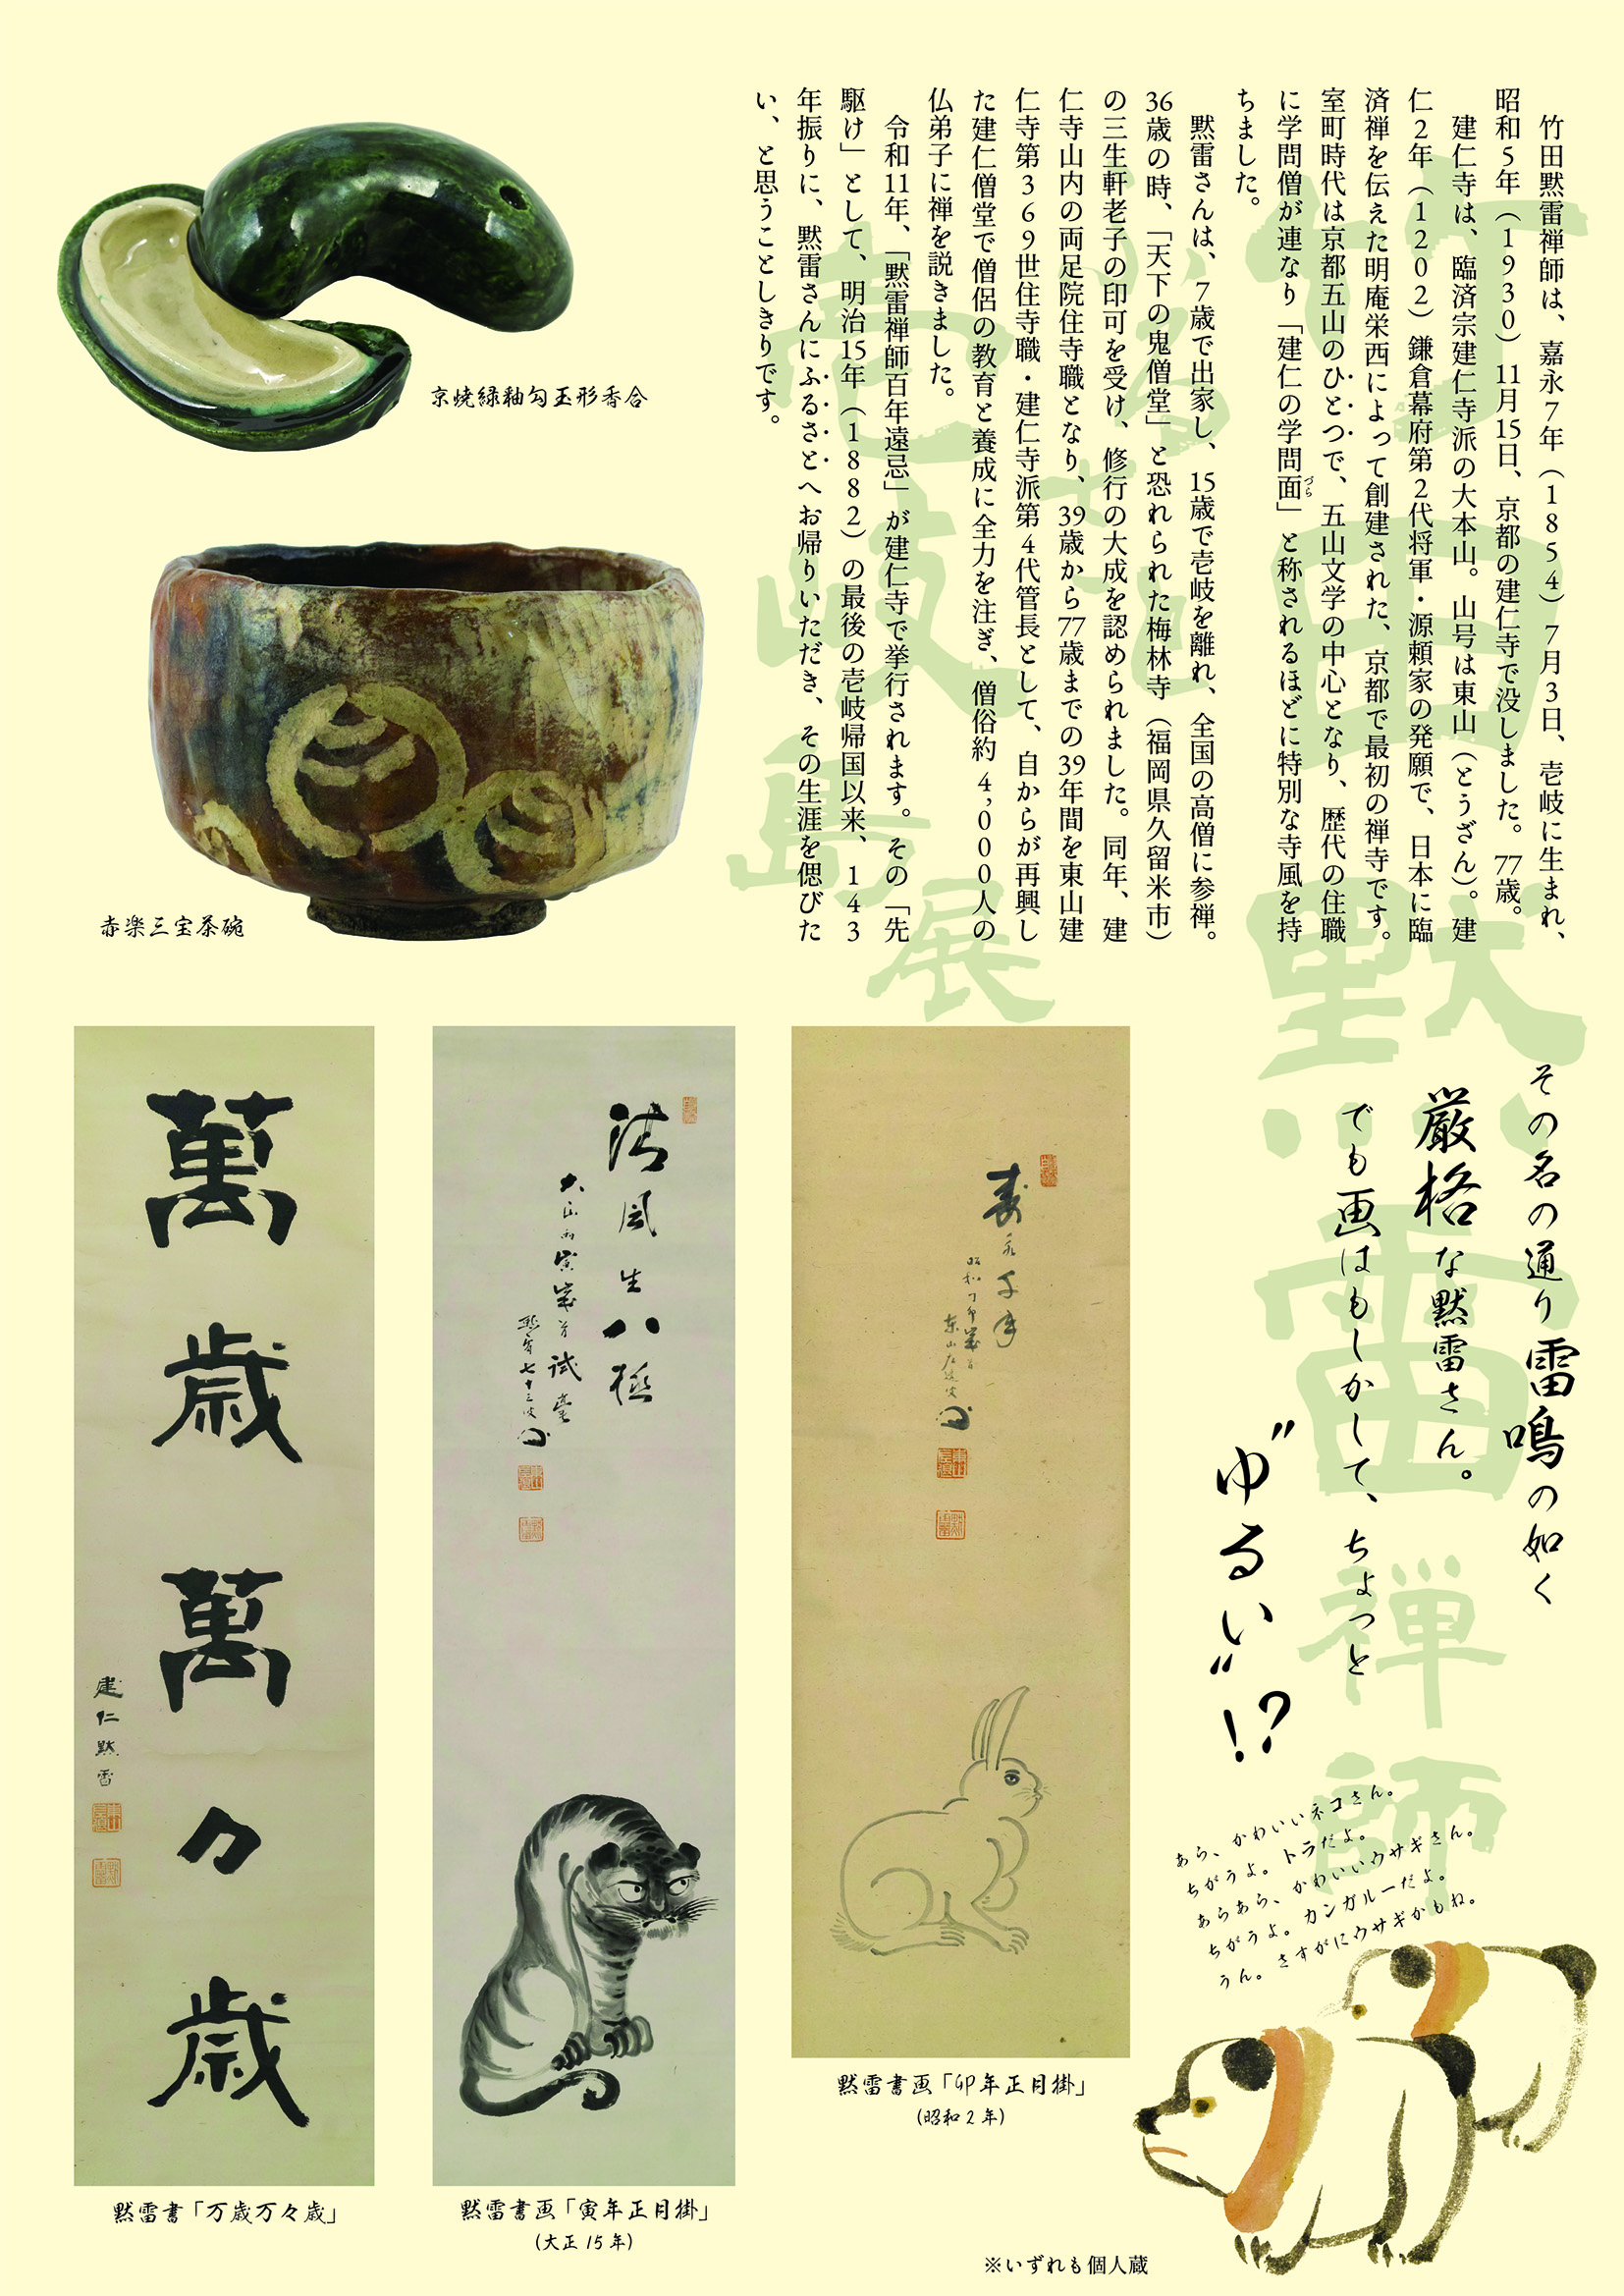 竹田黙雷禅師は、嘉永７年（１８５４）７月３日、壱岐に生まれ、
昭和５年（１９３０）11月15日、京都の建仁寺で没しました。77歳。
建仁寺は、臨済宗建仁寺派の大本山。山号は東山（とうざん）。建
仁２年（１２０２）鎌倉幕府第２代将軍・源頼家の発願で、日本に臨
済禅を伝えた明庵栄西によって創建された、京都で最初の禅寺です。
室町時代は京都五山のひとつで、五山文学の中心となり、歴代の住職
に学問僧が連なり「建仁の学問面づら」と称されるほどに特別な寺風を持
ちました。
黙雷さんは、７歳で出家し、15歳で壱岐を離れ、全国の高僧に参禅。
36歳の時、「天下の鬼僧堂」と恐れられた梅林寺（福岡県久留米市）
の三生軒老子の印可を受け、修行の大成を認められました。同年、建
仁寺山内の両足院住寺職となり、39歳から77歳までの39年間を東山建
仁寺第３６９世住寺職・建仁寺派第４代管長として、自からが再興し
た建仁僧堂で僧侶の教育と養成に全力を注ぎ、僧俗約４,０００人の
仏弟子に禅を説きました。
令和11年、「黙雷禅師百年遠忌」が建仁寺で挙行されます。その「先
駆け」として、明治15年（１８８２）の最後の壱岐帰国以来、１４３
年振りに、黙雷さんにふるさとへお帰りいただき、その生涯を偲びた
い、と思うことしきりです。
竹田黙雷禅師
壱岐島展
京焼緑釉勾玉形香合
赤楽三宝茶碗
その名の通り雷鳴の如く
厳格な黙雷さん。
でも画はもしかして、ちょっと
“ゆるい”!?
あら、かわいいネコさん。
ちがうよ。トラだよ。
あらあら、かわいいウサギさん。
ちがうよ。カンガルーだよ。
うん。さすがにウサギかもね。
壽永千年
昭和丁卯歳首
清風生八極
大正丙寅歳首試毫
黙雷七十三叟
萬歳萬々歳
建仁黙雷
黙雷書画「卯年正月掛」
（昭和２年）
黙雷書画「寅年正月掛」
（大正15年）
黙雷書「万歳万々歳」
※いずれも個人蔵